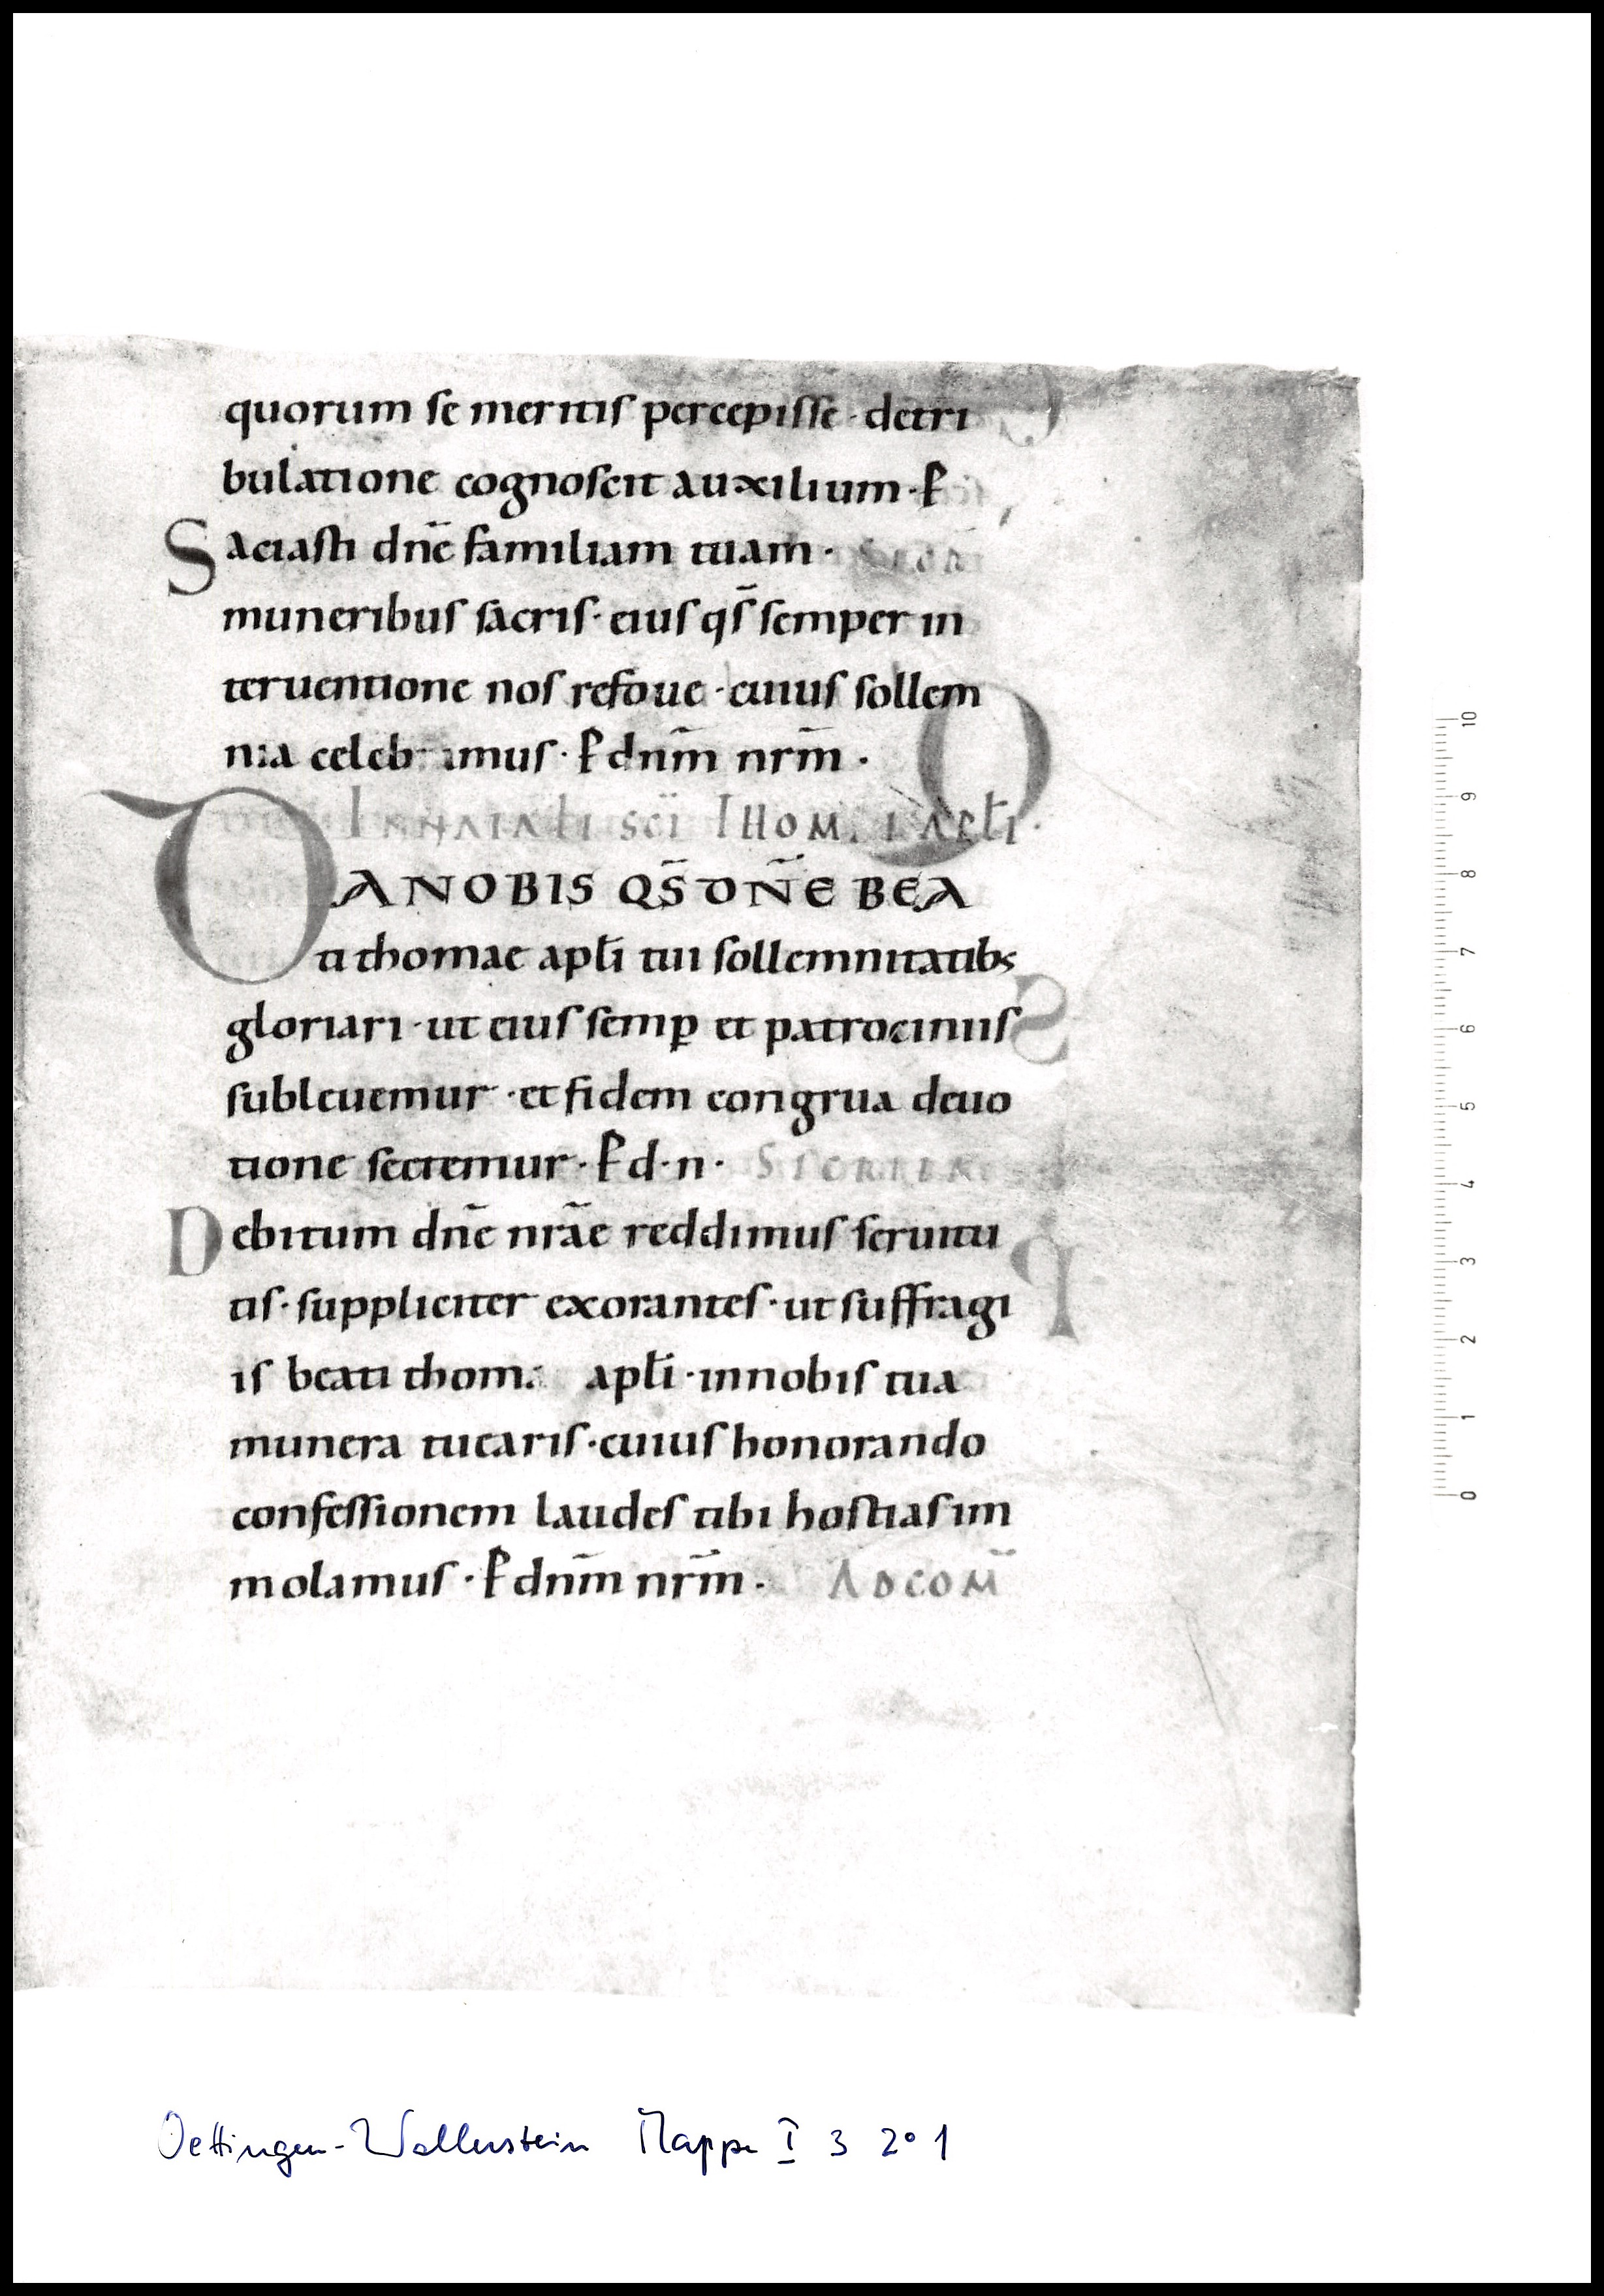 quorum se meritis percepisse · detri
bulatione cognoscit auxilium · P̄
Saciasti dn̄e familiam tuam ·
muneribus sacris · eius qs̄ semper in
teruentione nos refoue · cuius sollem
nia celebramus · P̄ dnm̄ nrm̄ ·
IN NATALI SCI THOMAE APLI ·
DA NOBIS QS̄ DN̄E BEA
ti thomae apl̄i tui sollemnitatibs
gloriari · ut eius semp̄ et patrociniis
subleuemur · et fidem congrua deuo
tione sectemur · P̄ d · n ·
Debitum dn̄e nrāe reddimus seruitu
tis · suppliciter exorantes · ut suffragi
is beati thomae apl̄i · in nobis tua
munera tuearis · cuius honorando
confessionem laudes tibi hostias im
molamus · P̄ dnm̄ nrm̄ · AD COM̄
Oettingen-Wallerstein Mappe I 3 2° 1
10
9
8
7
6
5
4
3
2
1
0